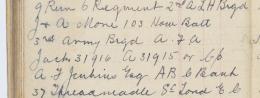 9 Rems 6 Regiment 2nd A L H Brgd
J & A More 103 How Batt
3rd Army Brgd A. F. A
Jack 31916 A 31915 or Cp
A F Jenkins Esq A B C Bank
37 Threadneadle St Lond E C